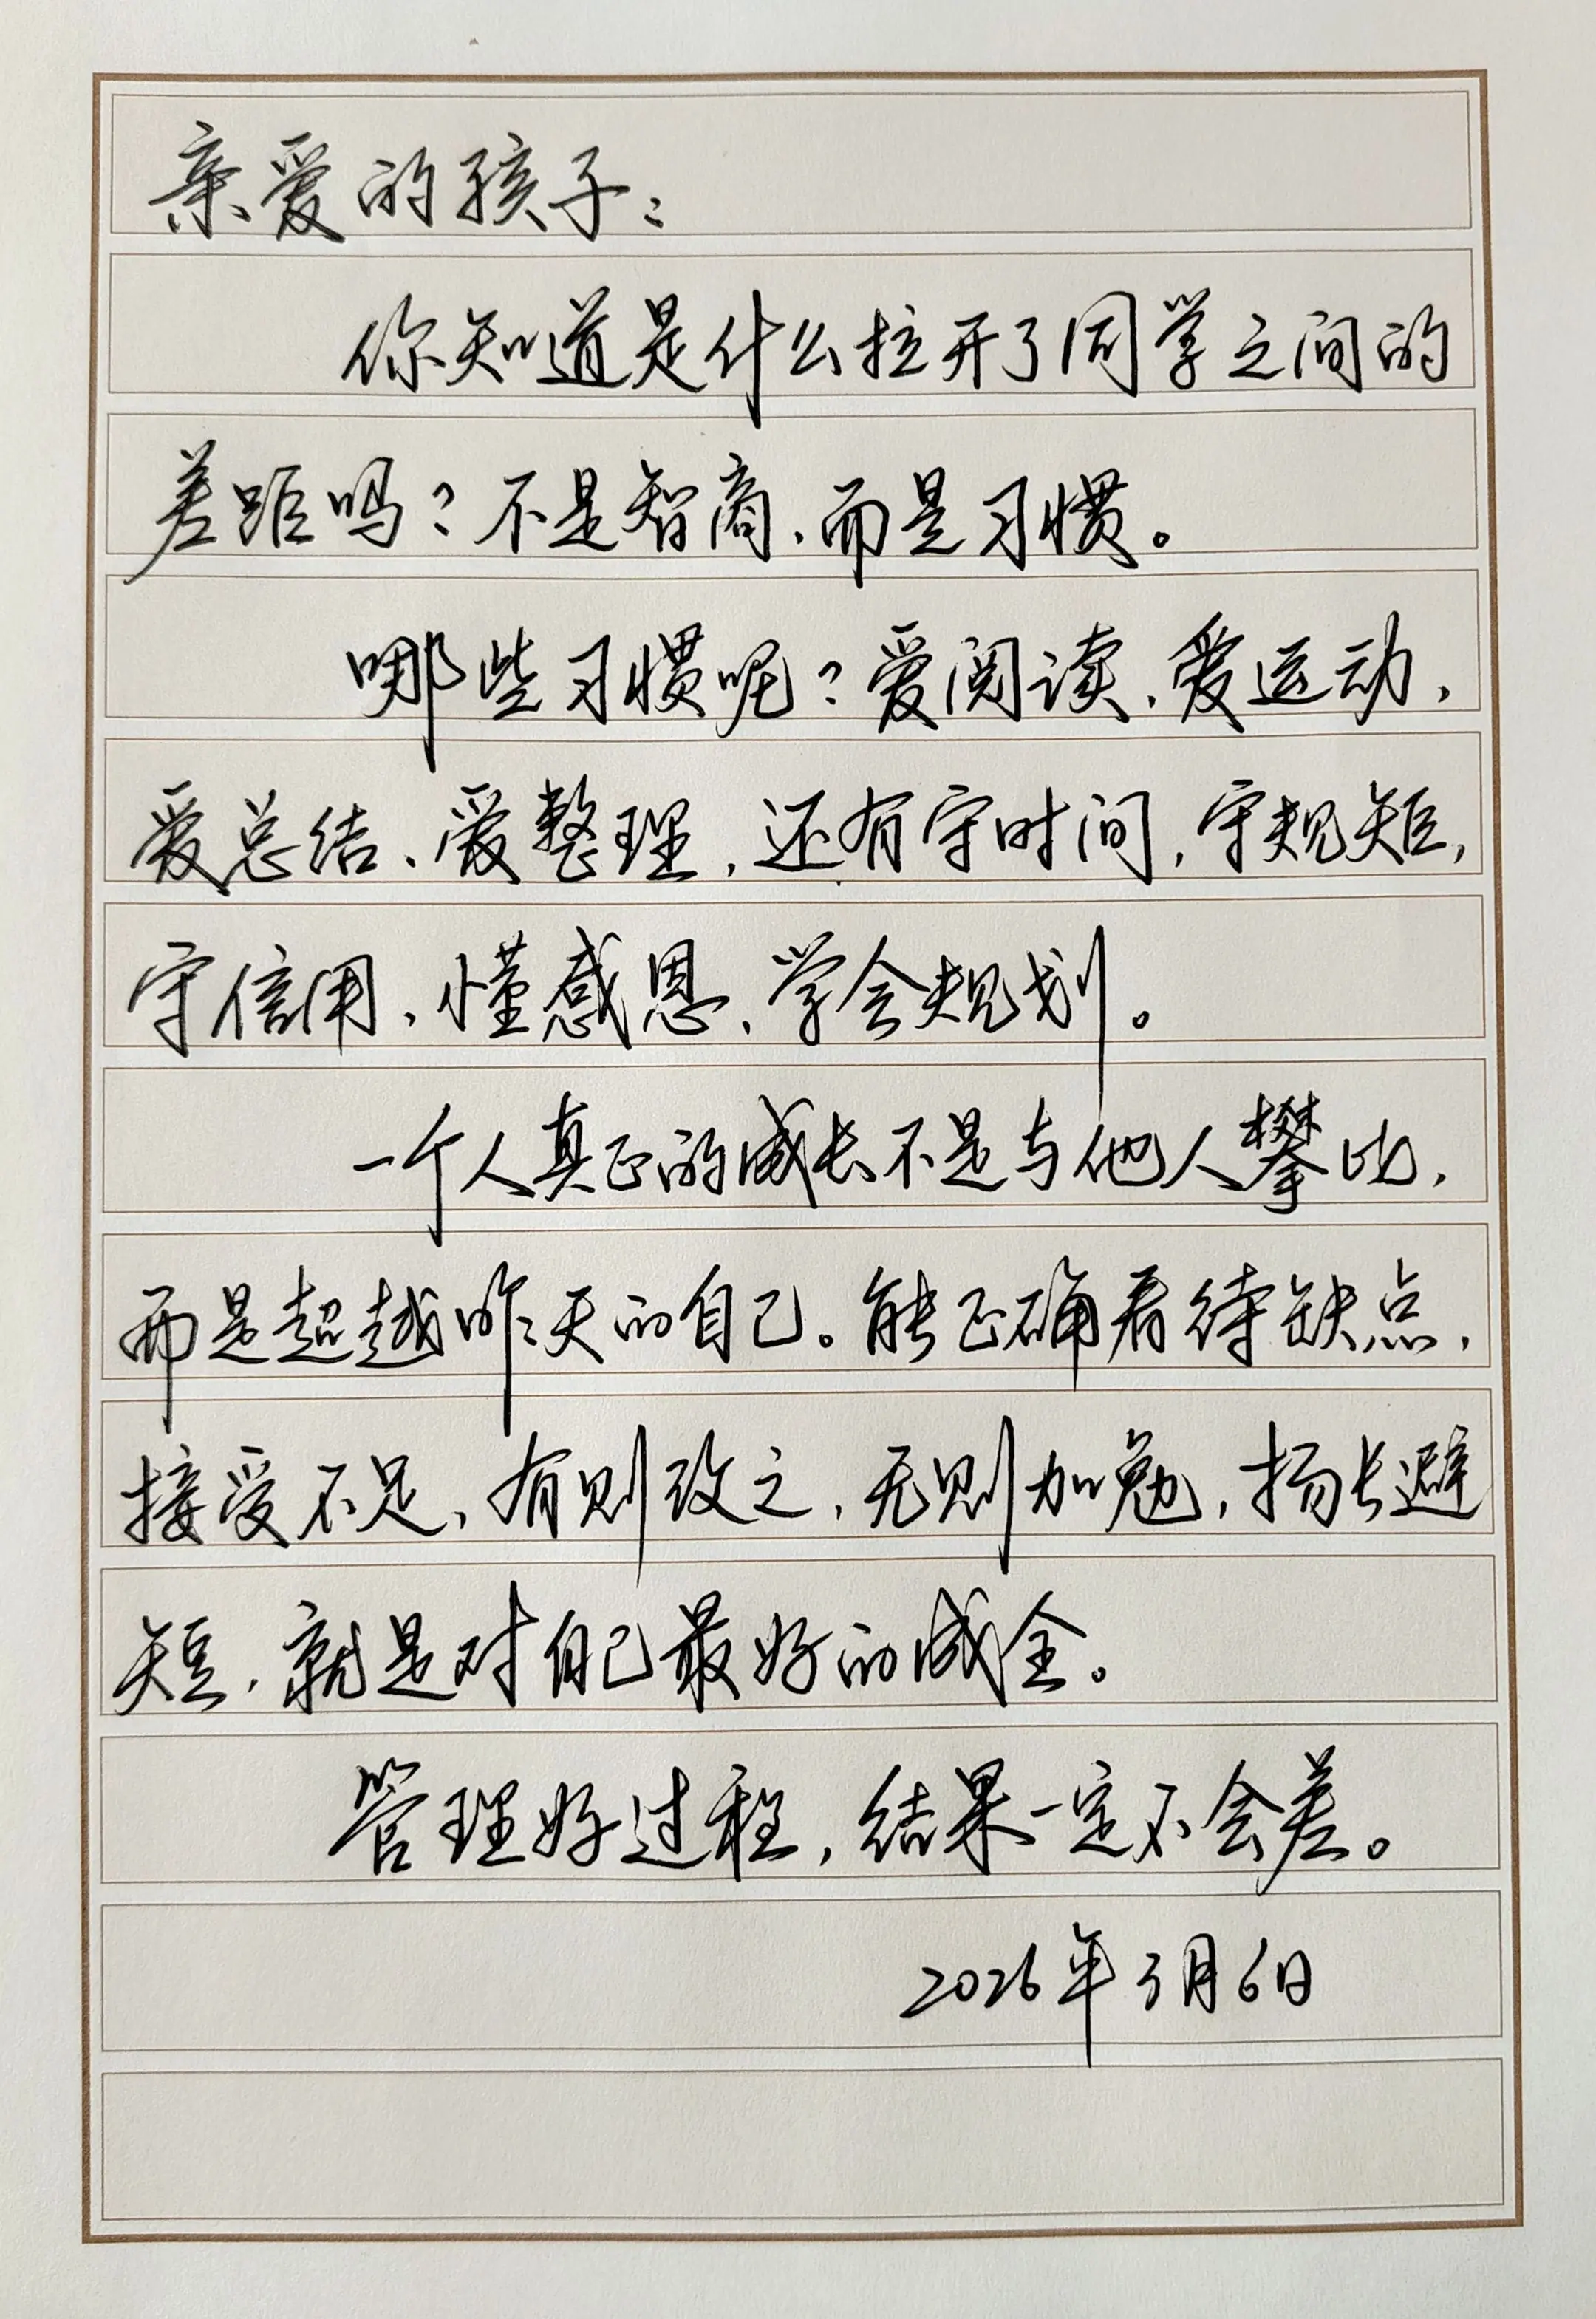 亲爱的孩子：
你知道是什么拉开了同学之间的
差距吗？不是智商，而是习惯。
哪些习惯呢？爱阅读，爱运动，
爱总结、爱整理，还有守时间，守规矩，
守信用，懂感恩，学会规划。
一个人真正的成长不是与他人攀比，
而是超越昨天的自己。能正确看待缺点，
接受不足，有则改之，无则加勉，扬长避
短，就是对自己最好的成全。
管理好过程，结果一定不会差。
2026年3月6日